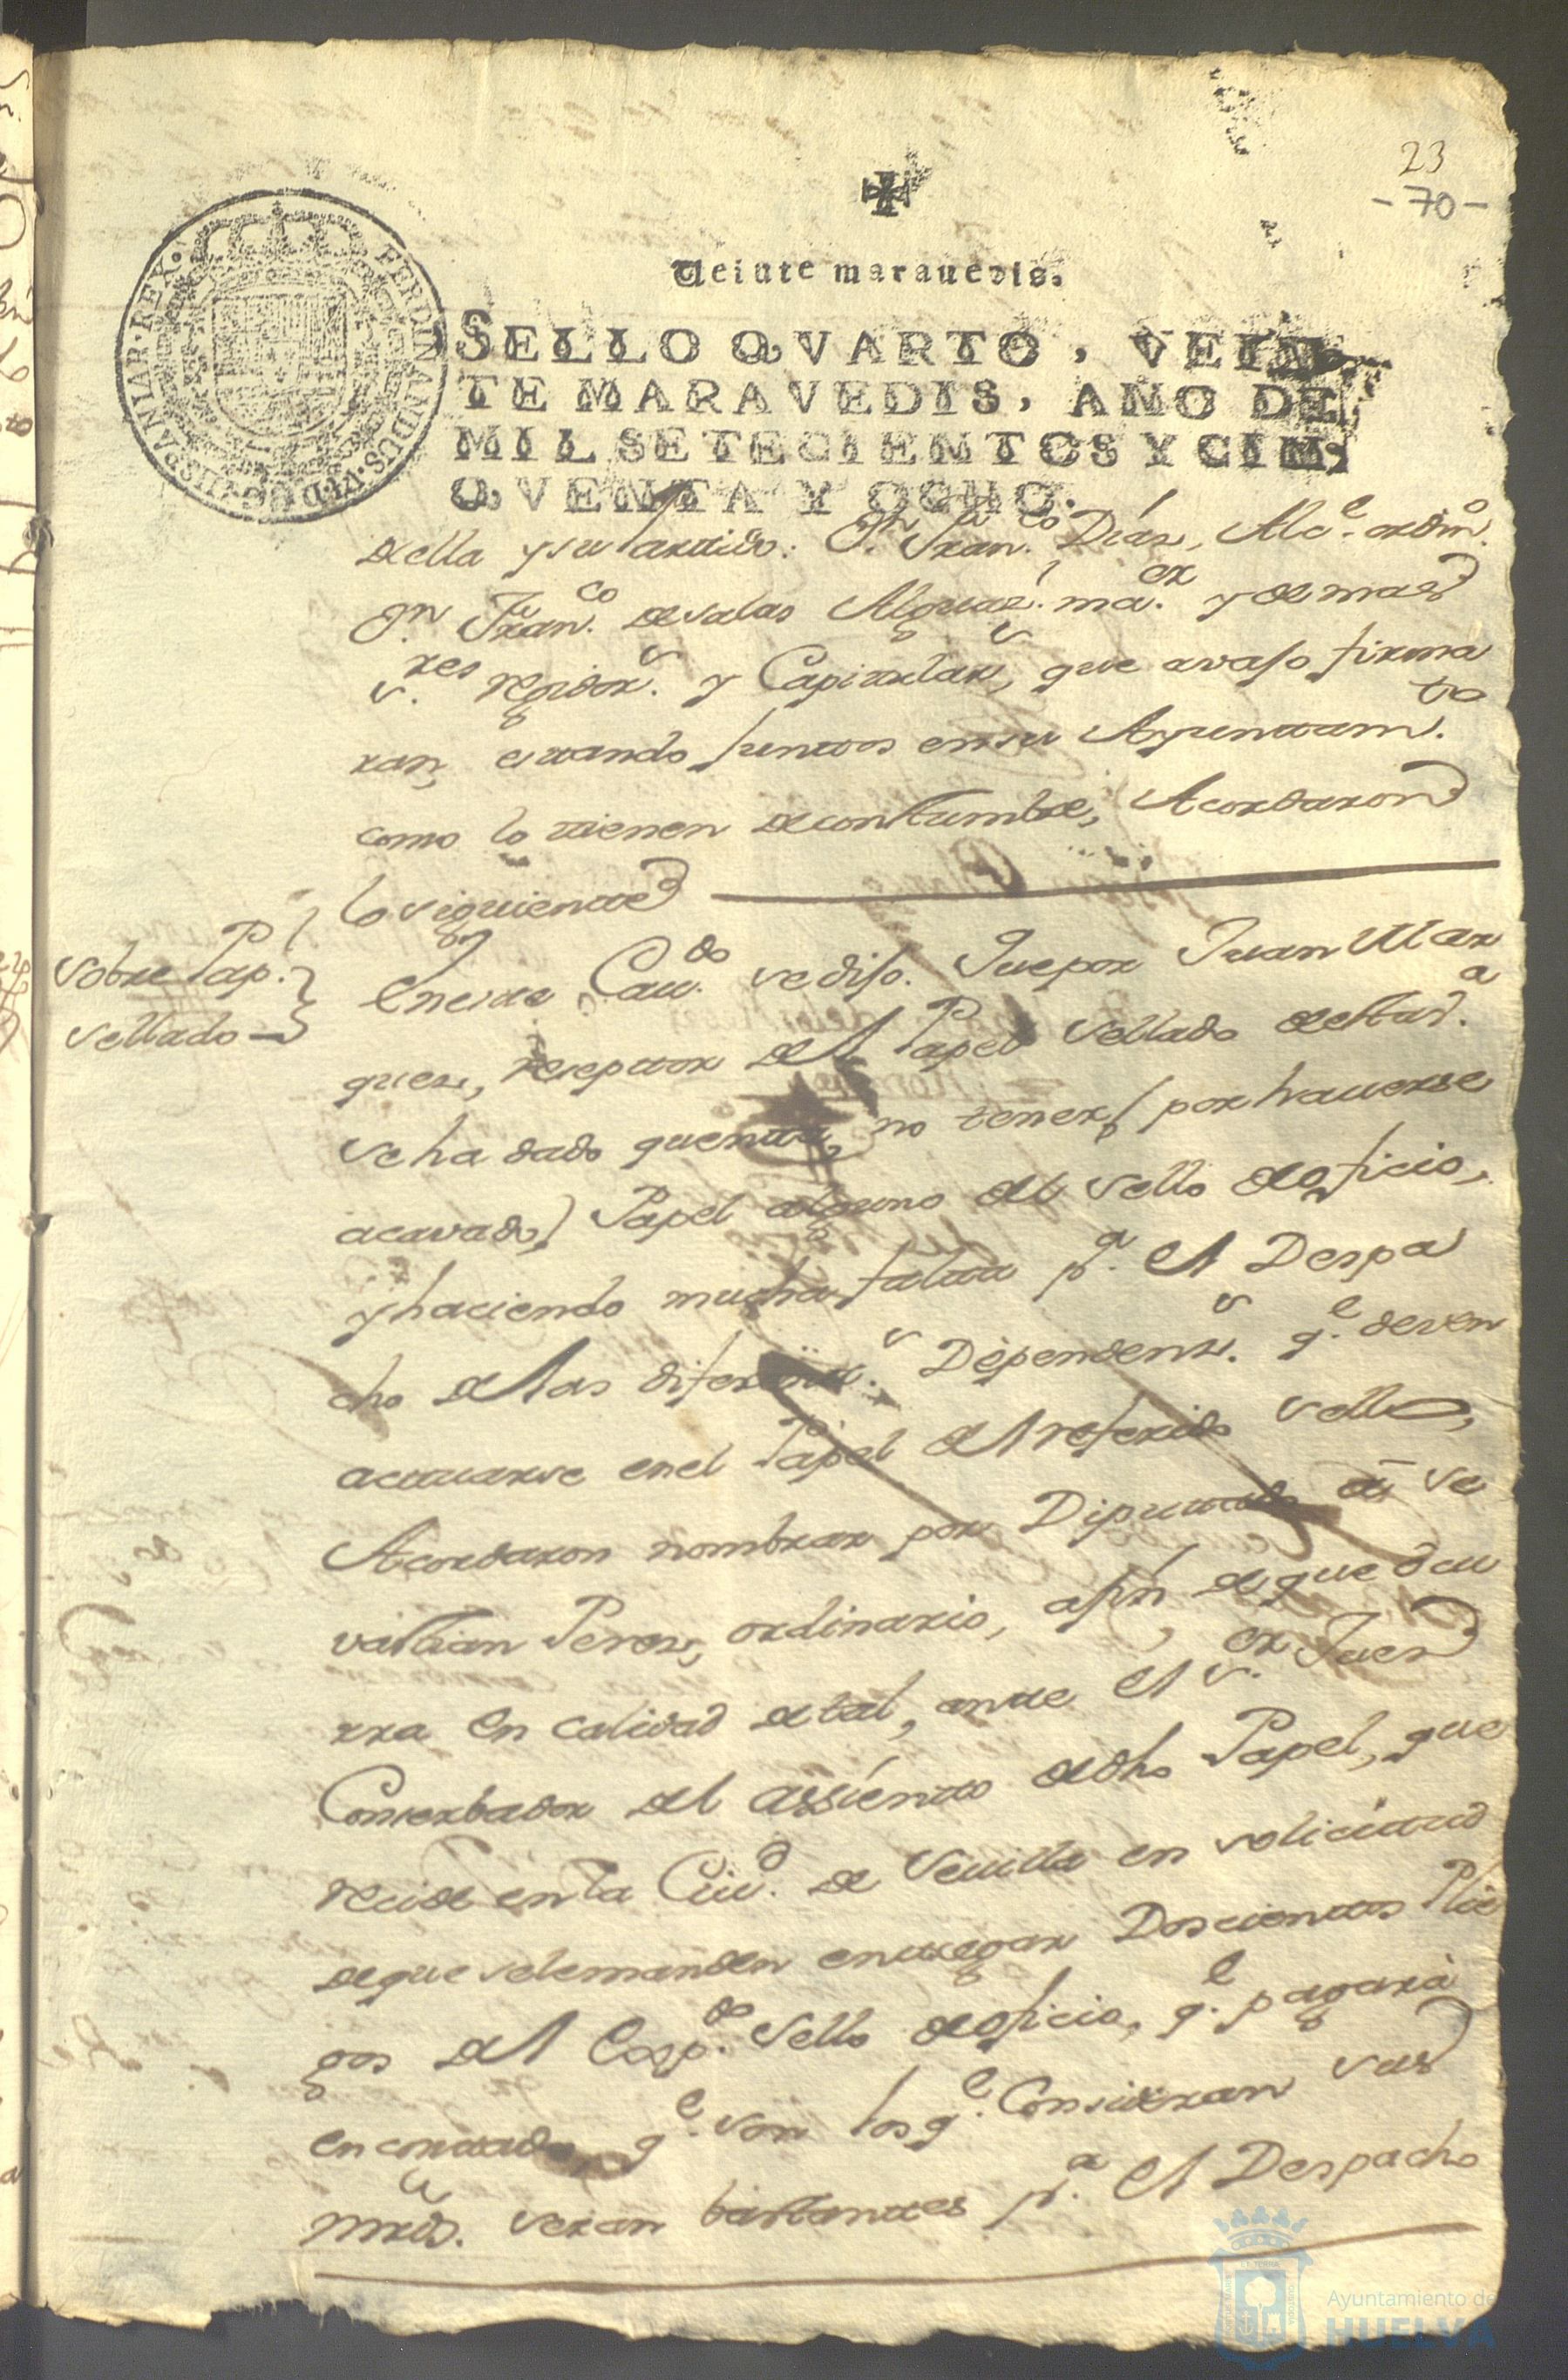 23
- 70 -
FERDINANDUS·VI·D·G·HISPANIAR·REX·
Veinte marauedis.
SELLO QVARTO, VEIN
TE MARAVEDIS, AÑO DE
MIL SETECIENTOS Y CIN,
QVENTA Y OCHO.
della y su Partido: Dn. Franco. Díaz, Alce. ordino.
Dn. Franco. de salas Alguazl. maor. y demas
sres. rejidors. y Capitulars, que avajo firma
ran, estando Juntos en su Ayuntamto.
como lo tienen de costumbre, Acordaron
lo siguiente
Sobre Pap.
sellado
En este Cavdo. se dijo. Que por Juan Mar
quez, reseptor del Papel sellado de esta Va.
se ha dado quenta, no tener (por hauerse
acavado) Papel alguno del sello de oficio,
y haciendo mucha falta pa. el Despa
cho de las diferents. Dependens. qe. deven
actuarse en el Papel del referido sello,
Acordaron nombrar por Diputado a Se
vastian Perez, ordinario, afin de que ocu
rra en calidad de tal, ante el sor. Juez
Conserbador del assiento de dho Papel, que
recide en la Ciud. de Seuilla en solicitud
de que se le manden entregar Doscientos Plie
gos del Espdo. sello de oficio, qe. pagará
en contado, qe. son los qe. Consideran sus
mrds. seran bastantes pa. el Despacho
Ayuntamiento de
HUELVA